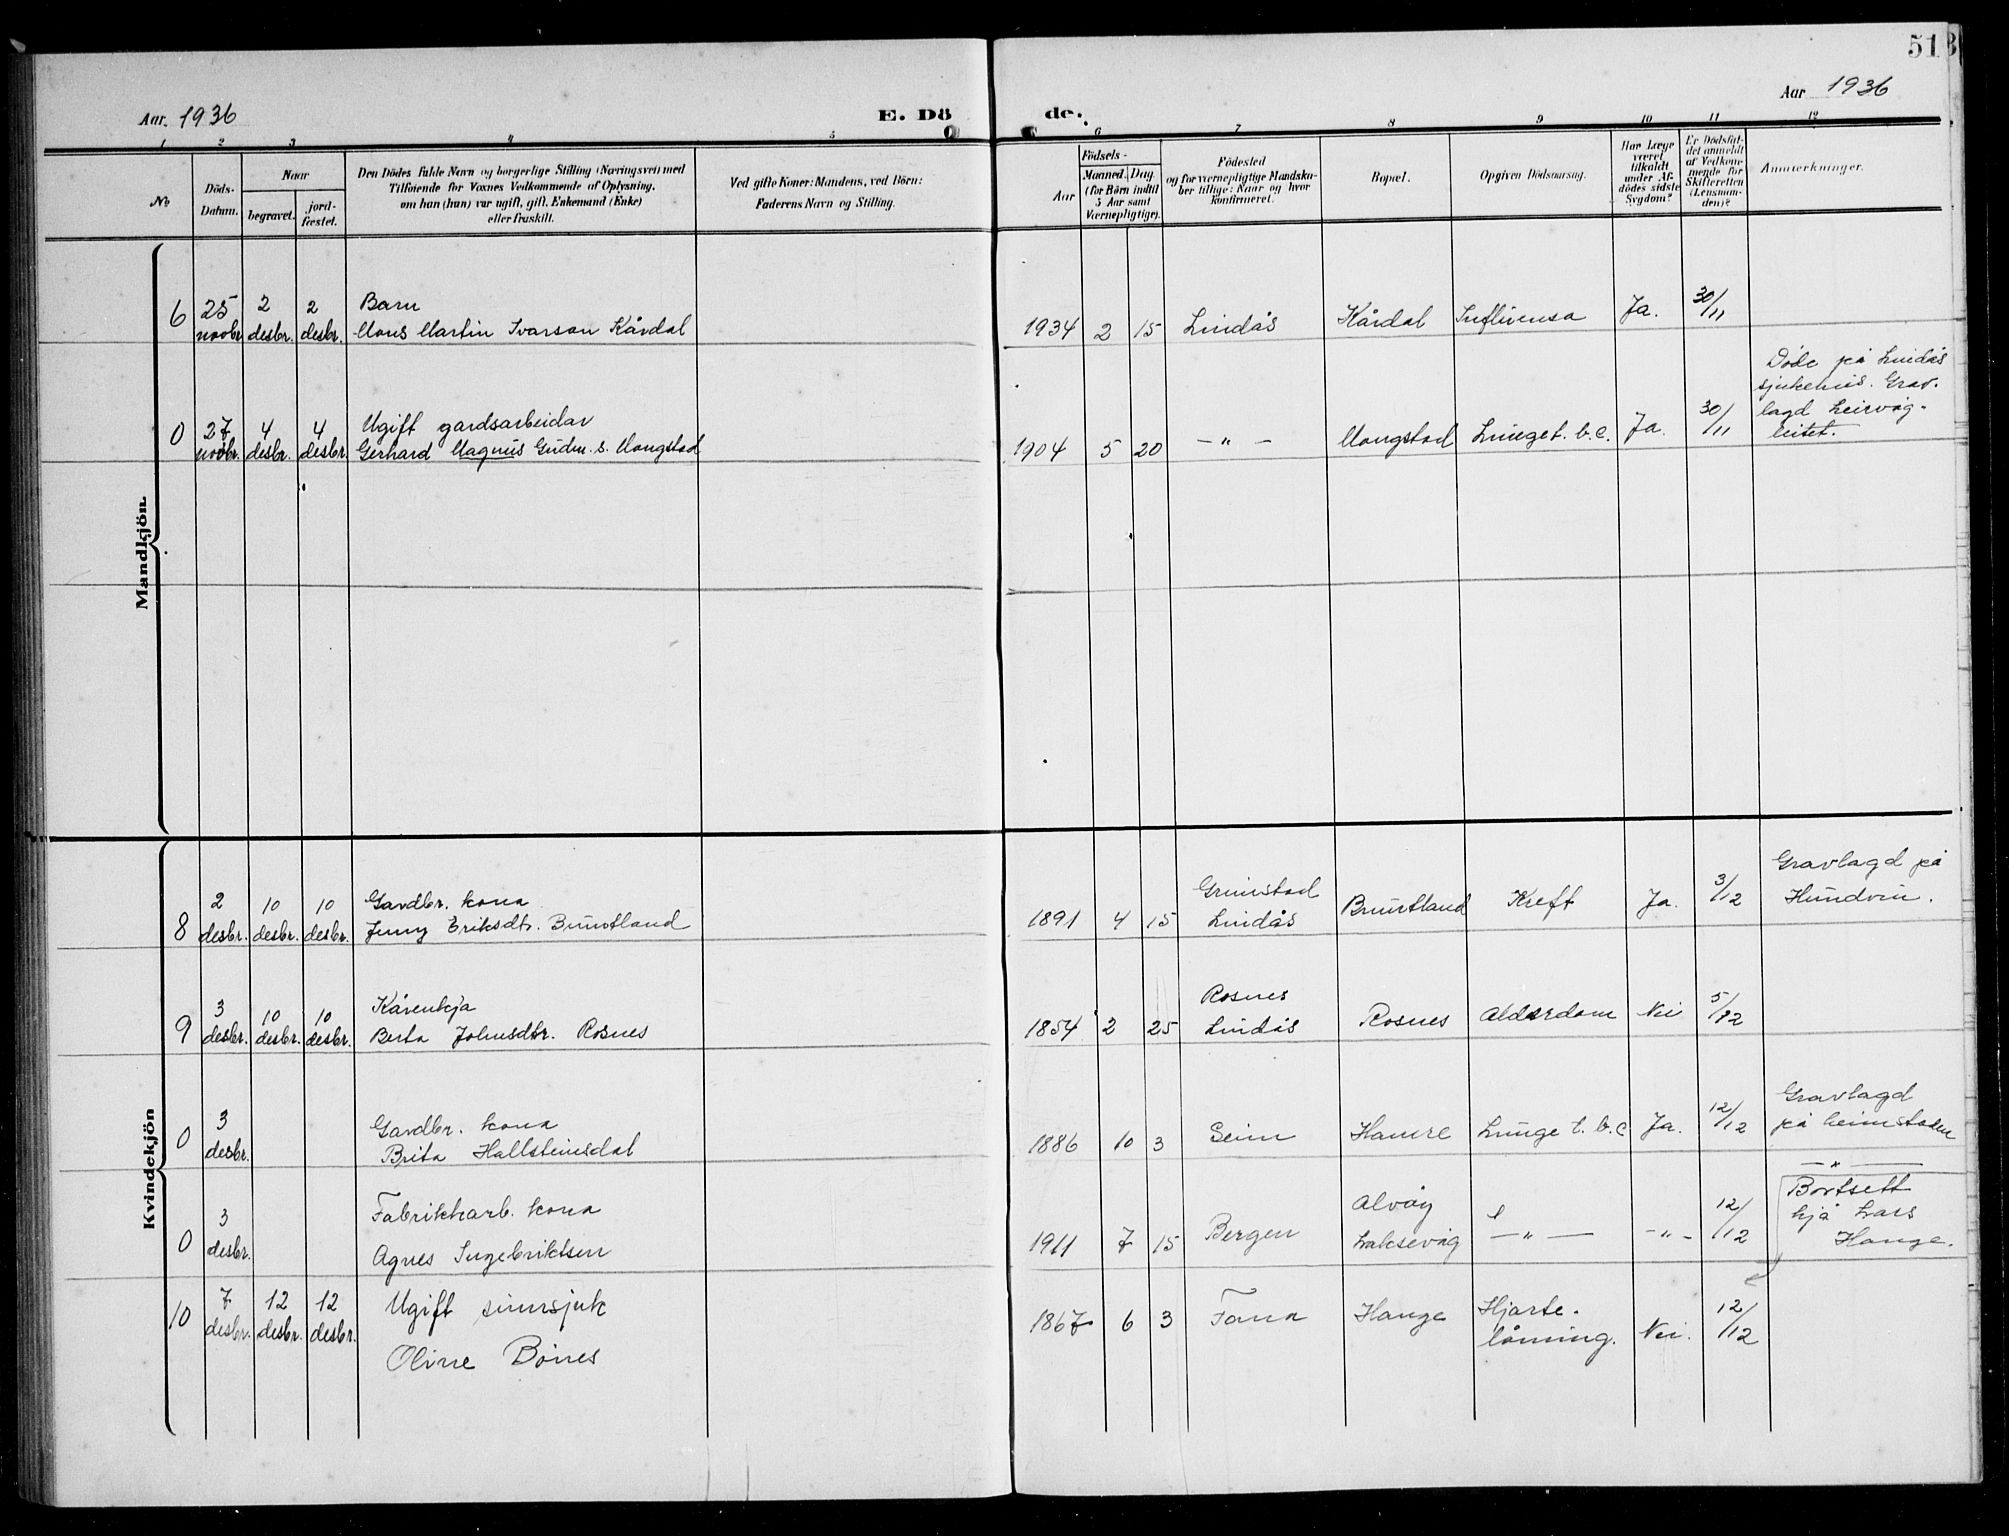 51
Aar 1936
E. Dö
de.
Aar 1936
1 2 3 4 5
6 7 8 9 10 11 12
No
Döds-
Datum.
Naar
begravet.
jord-
fæstet.
Den Dödes fulde Navn og borgerlige Stilling (Næringsvei) med
Tilföiende for Voxnes Vedkommende af Oplysning,
om han (hun) var ugift, gift, Enkemand (Enke)
eller fraskilt.
Ved gifte Koner: Mandens, ved Börn:
Faderens Navn og Stilling.
Födsels-
Aar
Maaned. Dag
(for Börn indtil
5 Aar samt
Værnepligtige).
Födested
og for værnepligtige Mandska-
ber tillige: Naar og hvor
konfirmeret.
Bopæl.
Opgiven Dödsaarsag.
Har Læge
været
tilkaldt
under Af-
dödes sidste
Sygdom?
Er Dödsfal-
det anmeldt
af Vedkom-
mende for
Skifteretten
(Lensman-
den)?
Anmerkninger.
Mandkjön.
6 25 novbr. 2 desbr. 2 desbr. Barn
Mons Martin Ivarson Kårdal
1934 2 15 Lindås Kårdal Influensa Ja. 30/11
0 27 novbr. 4 desbr. 4 desbr. Ugift gardsarbeidar
Gerhard Magnus Gudm. s. Mongstad
1904 5 20 — " — Mongstad Lunget. b.c. Ja. 30/11
Døde på Lindås
sjukehus. Grav-
lagd Leirvåg-
leitet.
Kvindekjön
8 2 desbr. 10 desbr. 10 desbr. Gardbr. kona
Jenny Eriksdtr. Bruntland
1891 4 15 Grimstad
Lindås Bruntland Kreft Ja. 3/12
Gravlagd på
Hundvin.
9 3 desbr. 10 desbr. 10 desbr. Kårenkja
Berta Johnsdtr. Rosnes
1854 2 25 Rosnes
Lindås Rosnes Alderdom Nei 5/12
0 3 desbr. Gardbr. kona
Brita Hallsteinsdal
1886 10 3 Seim Hamre Lunge t.b.c Ja. 12/12
Gravlagd
på heimstaden
0 3 desbr. Fabrikkarb. kona
Agnes Ingebriktsen
1911 7 15 Bergen Alvåg
Laksevåg — " — — " — 12/12
— " —
Bortsett
hjå Lars
Hauge.
10 7 desbr. 12 desbr. 12 desbr. Ugift sinnsjuk
Oline Bönes
1867 6 3 Fana Hauge Hjarte-
låming. Nei. 12/12